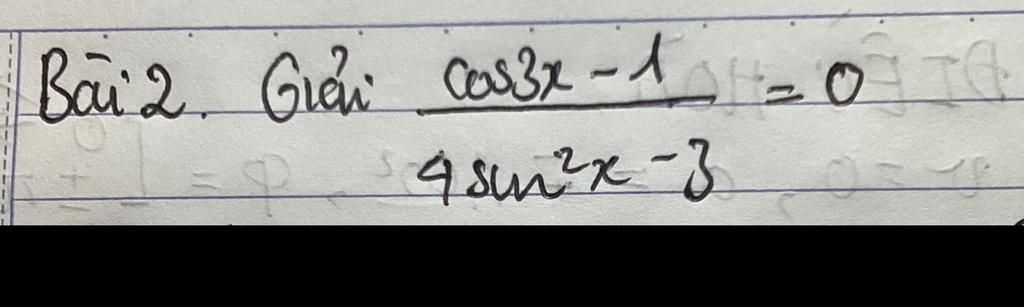 Bài 2. Giải cos3x - 1 / 4 sin²x - 3 = 0